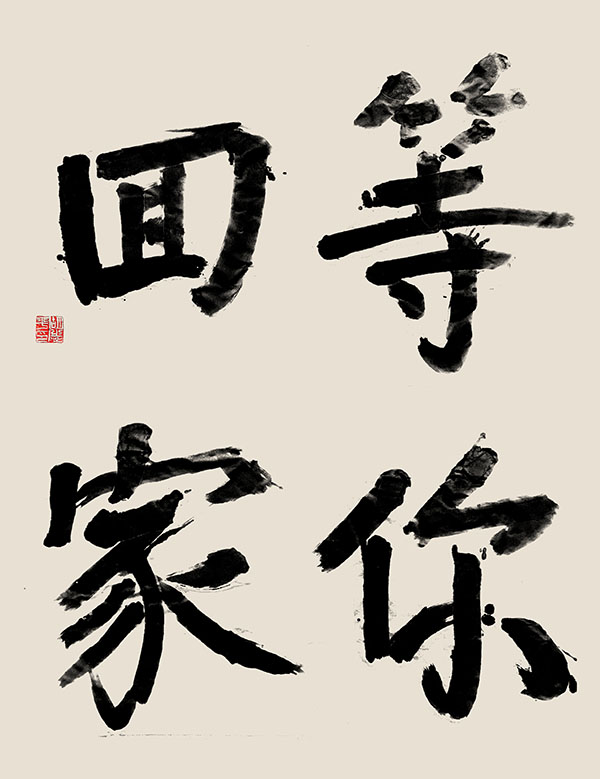 等你
回家